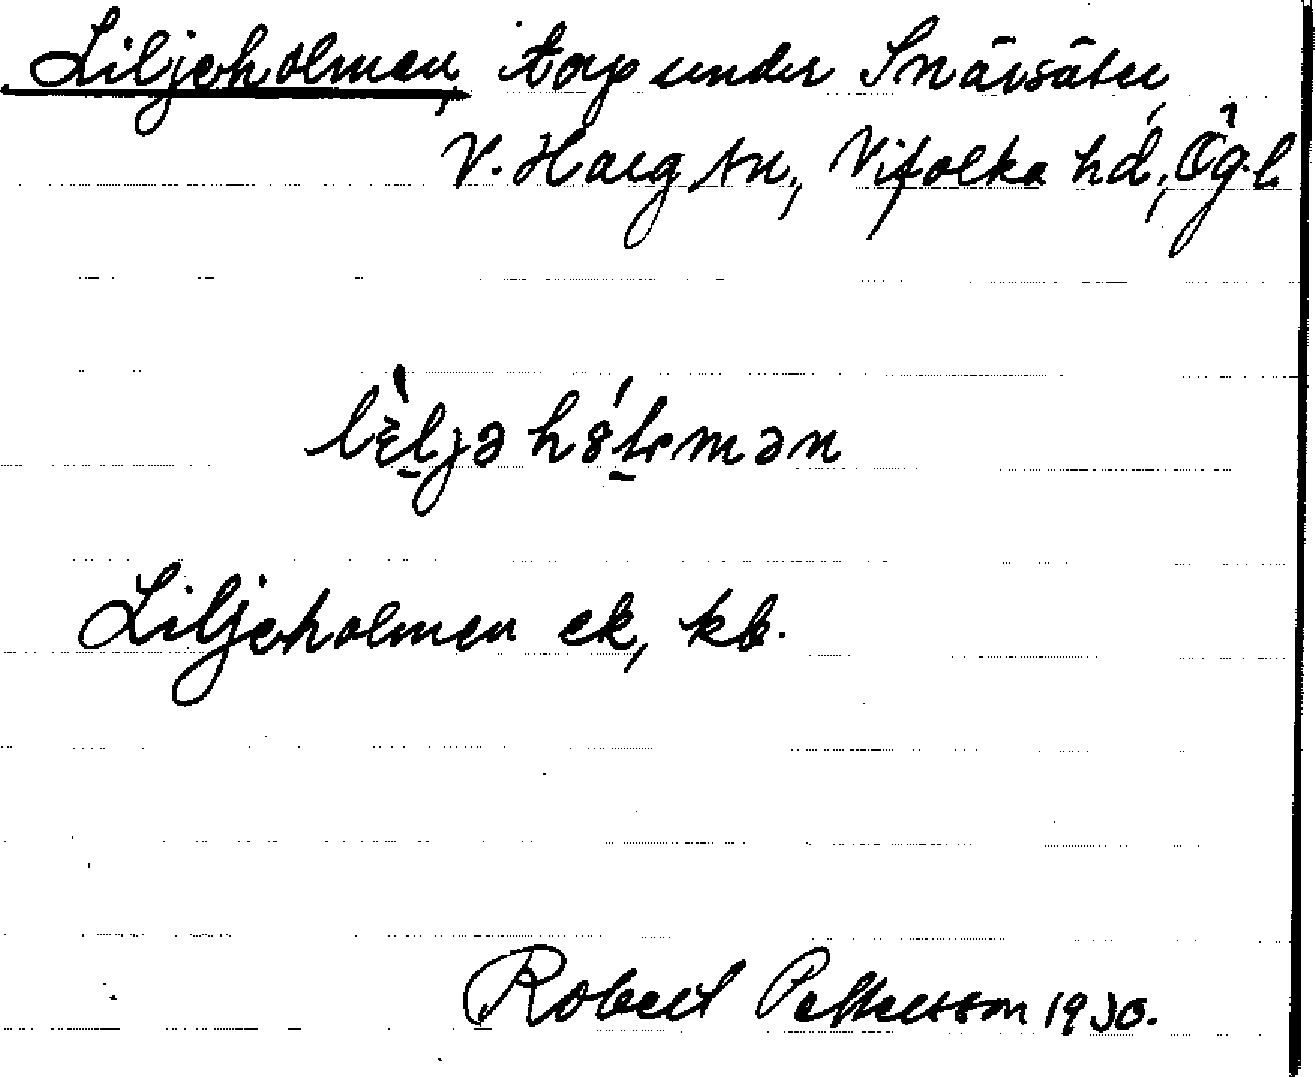 Liljeholmen, torp under Snärsäter,
V. Harg sn, Vifolka hd, Ög. l.
Liljeholmen ek, kb.
Robert Pettersson 1930.